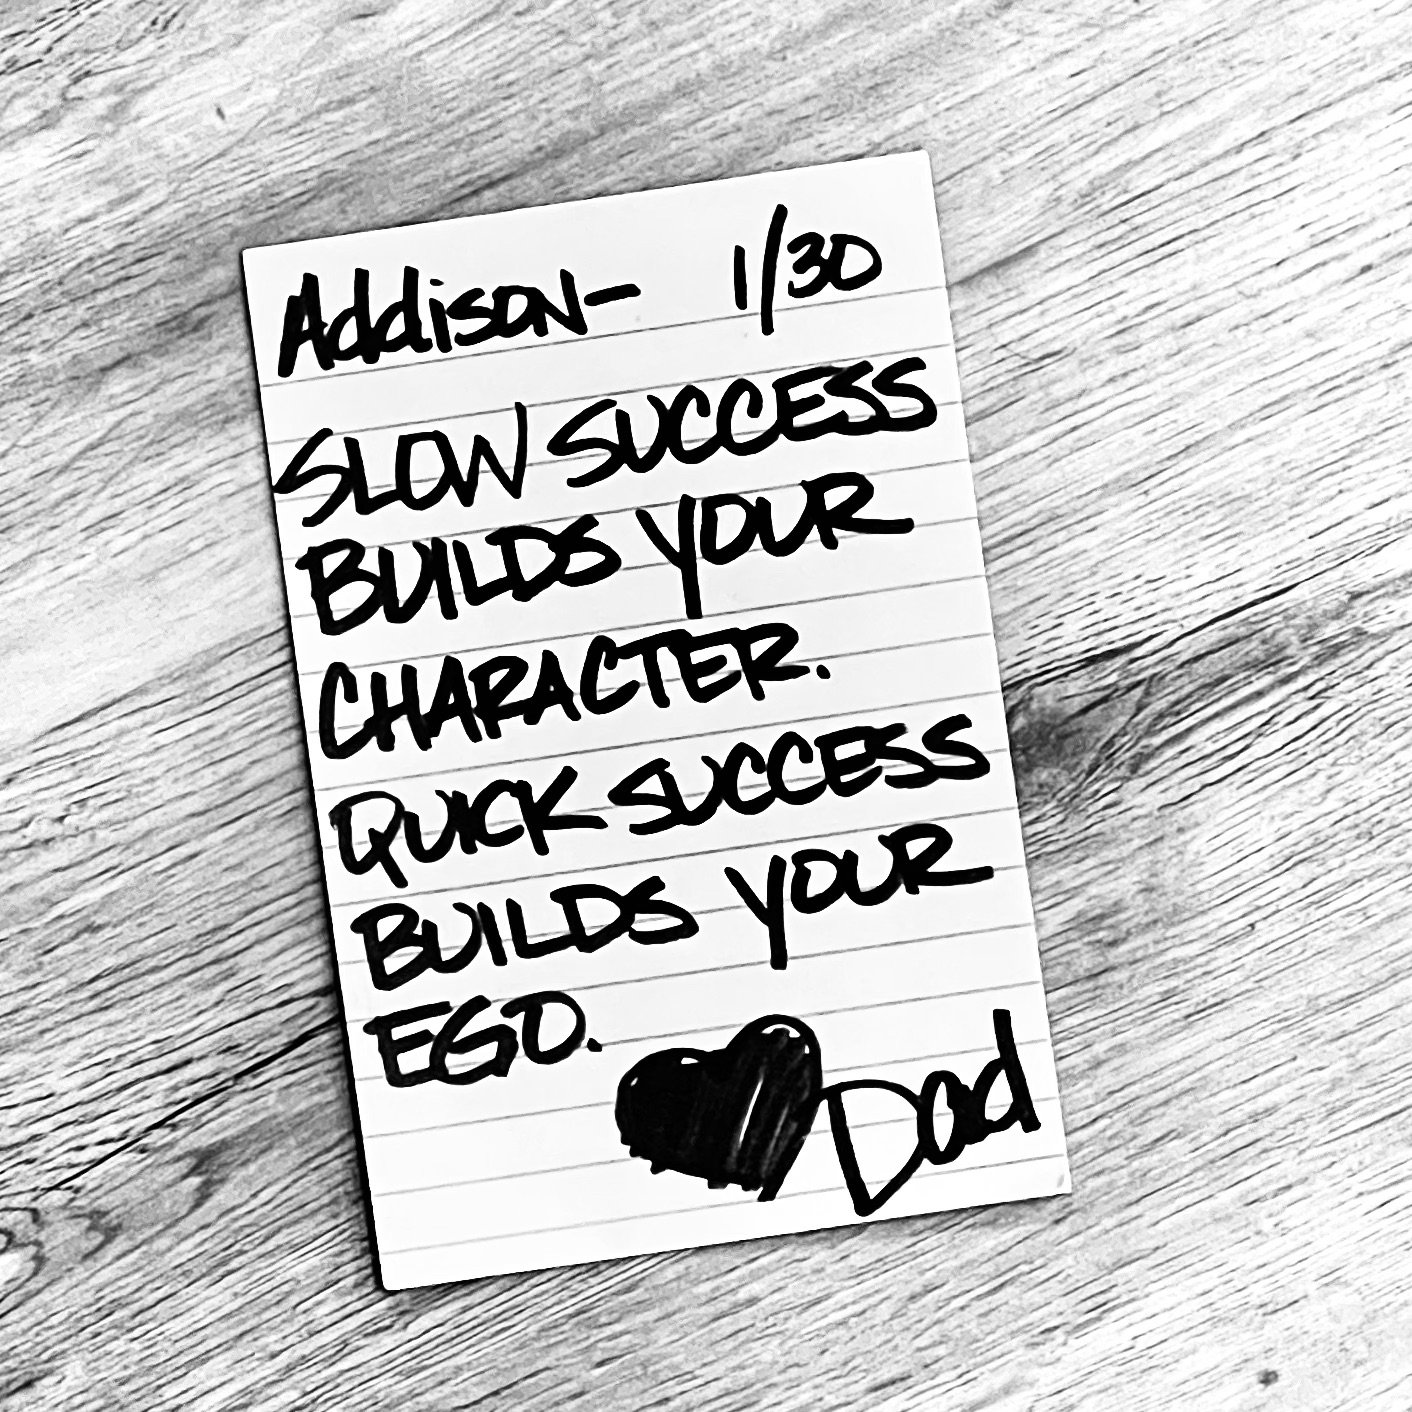 Addison- 1/30
SLOW SUCCESS
BUILDS YOUR
CHARACTER.
QUICK SUCCESS
BUILDS YOUR
EGO.
Dad